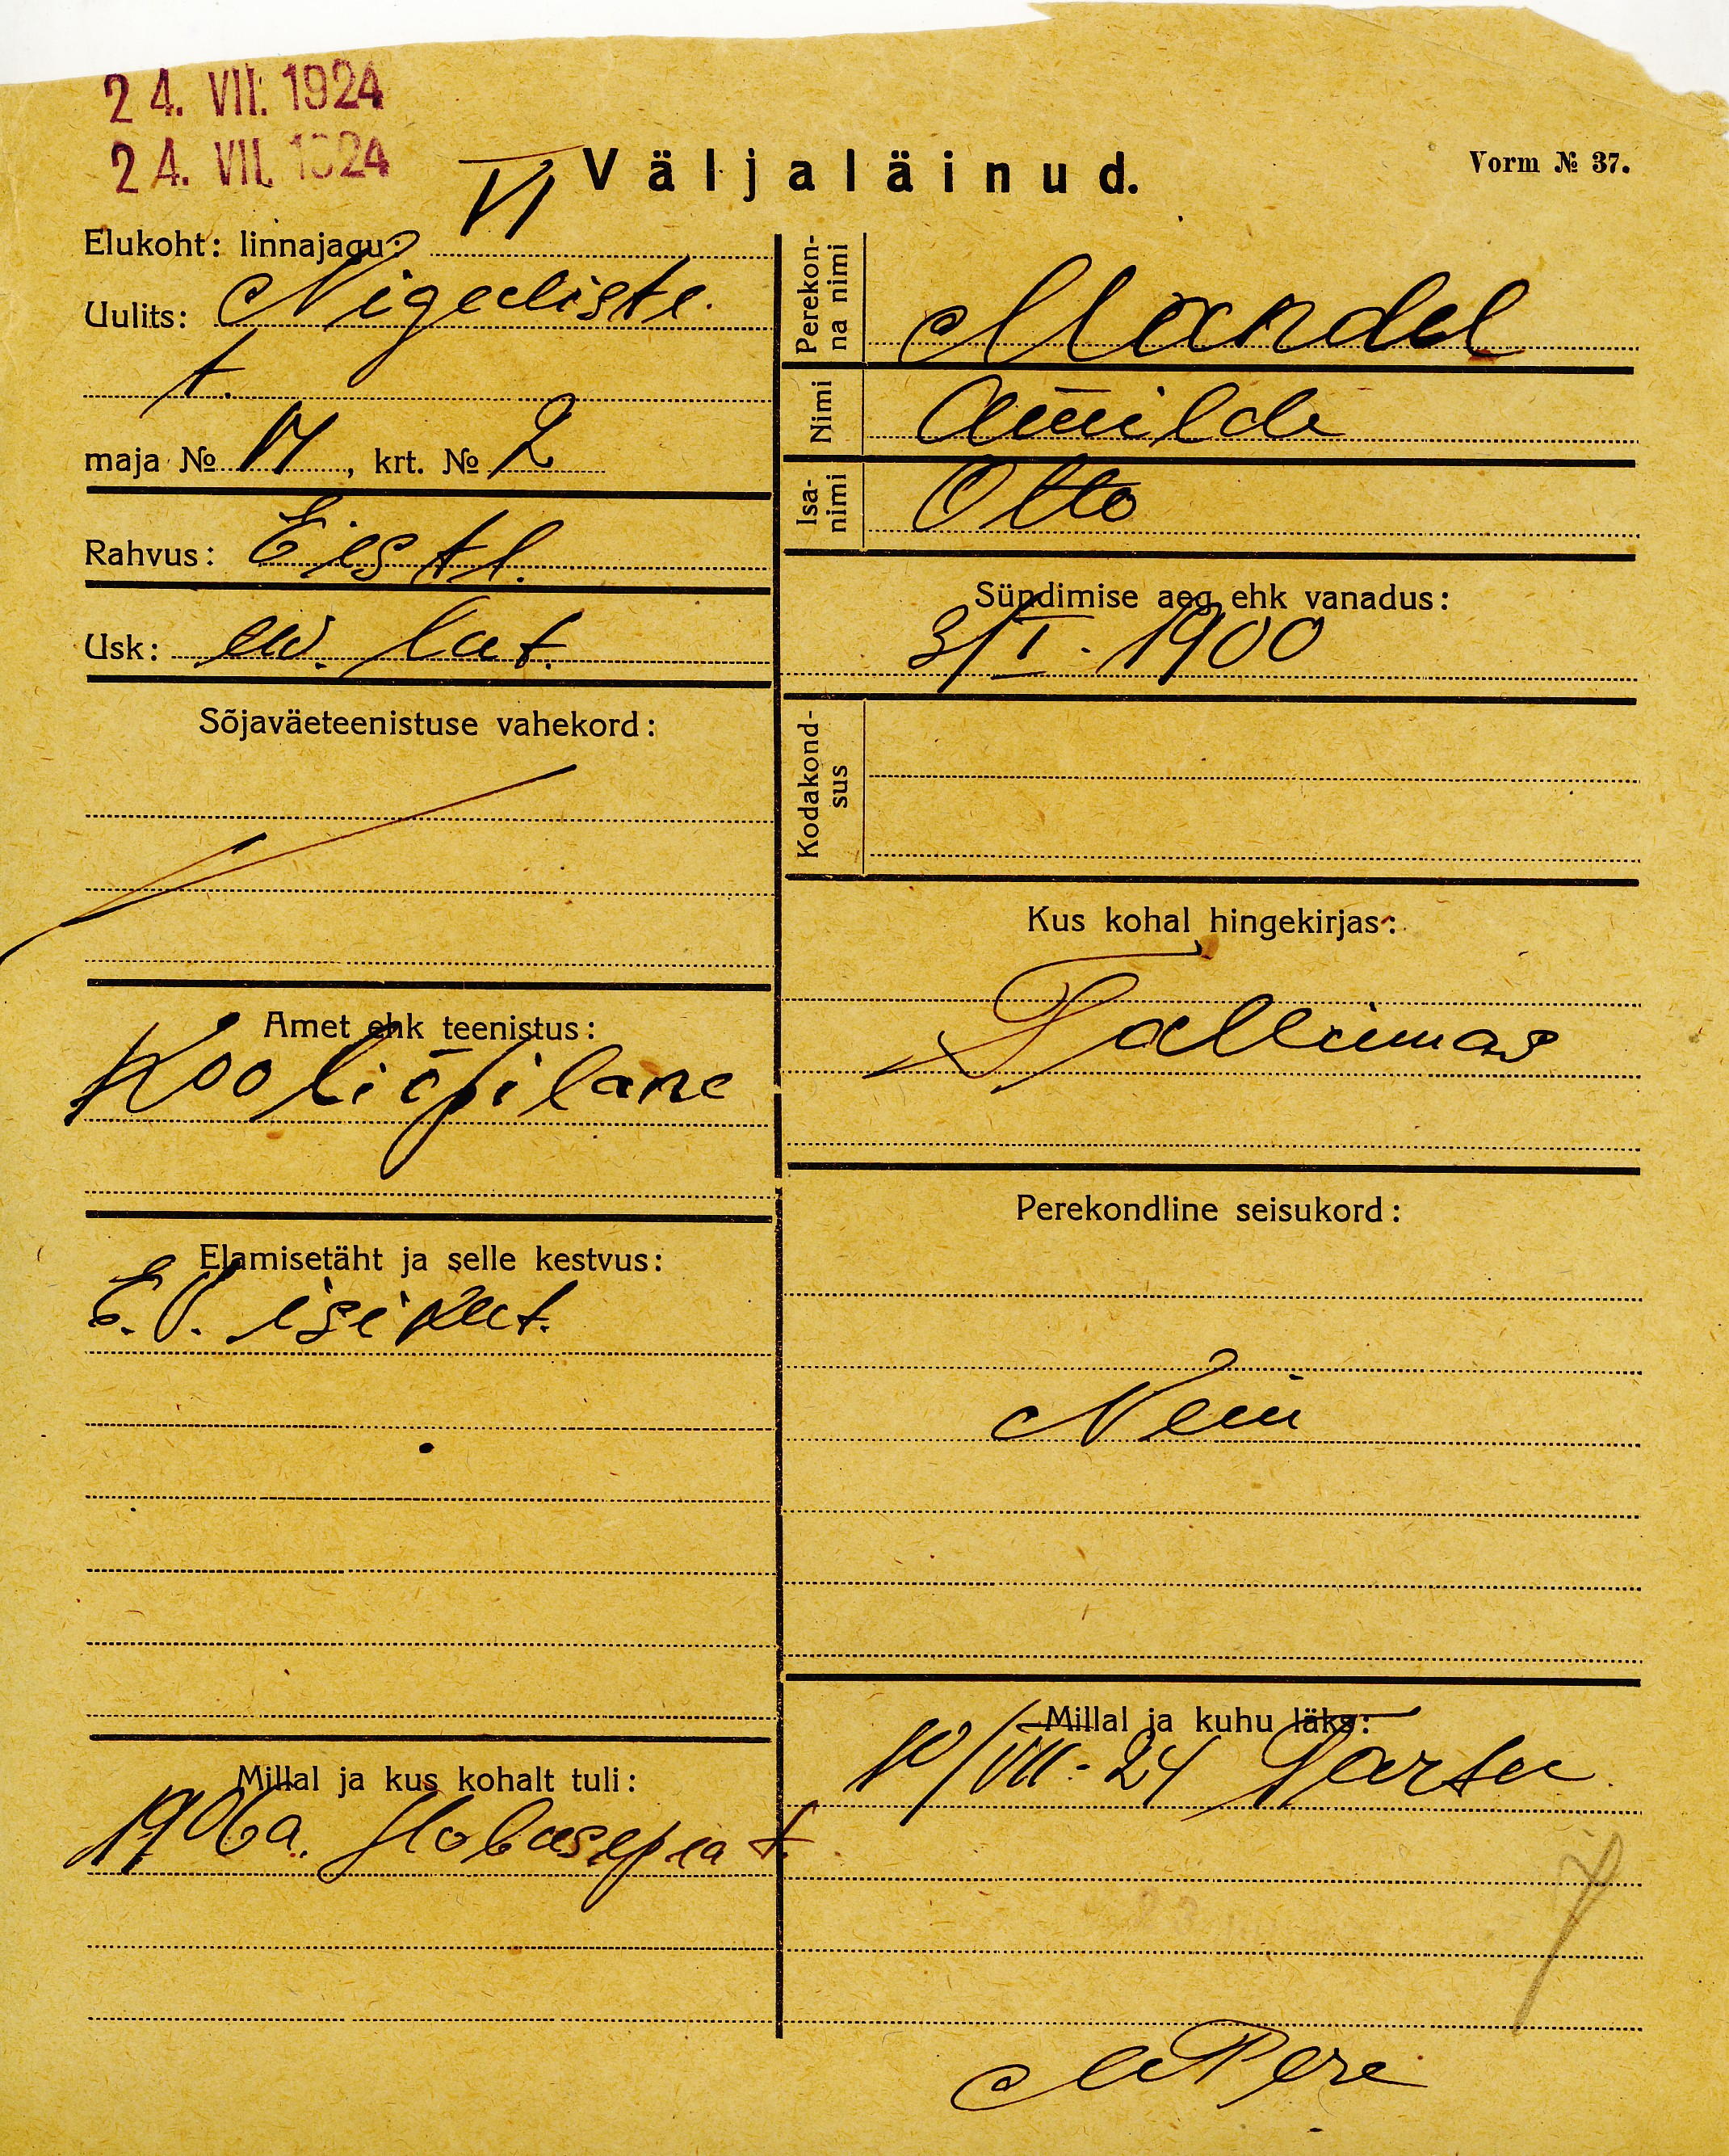 24. VII. 1924
24. VII. 1924
Väljaläinud.
Vorm № 37.
Elukoht: linnajagu: VI
Uulits: Nigeliste
t.
maja № 17, krt. № 2
Rahvus: Eestl.
Usk: ew. lut.
Sõjaväeteenistuse vahekord:
Amet ehk teenistus:
Kooliõpilane
Elamisetäht ja selle kestvus:
E.V. isikut.
Millal ja kus kohalt tuli:
1906a. Hobusepea t.
Perekonna nimi Mandel
Nimi Amilde
Isanimi Otto
Sündimise aeg ehk vanadus:
3/I. 1900
Kodakondsus
Kus kohal hingekirjas:
Tallinnas
Perekondline seisukord:
Neiu
Millal ja kuhu läks:
10/VII-24 Tartu